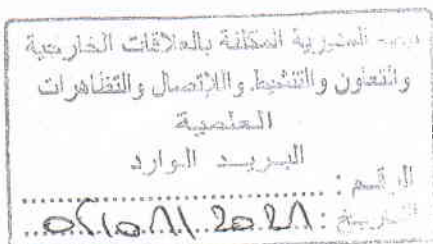 المديرية المكلفة بالعلاقات الخارجية
والتعاون والتنشيط والاتصال والتظاهرات
العلمية
البريد الوارد
الرقم :
التاريخ :